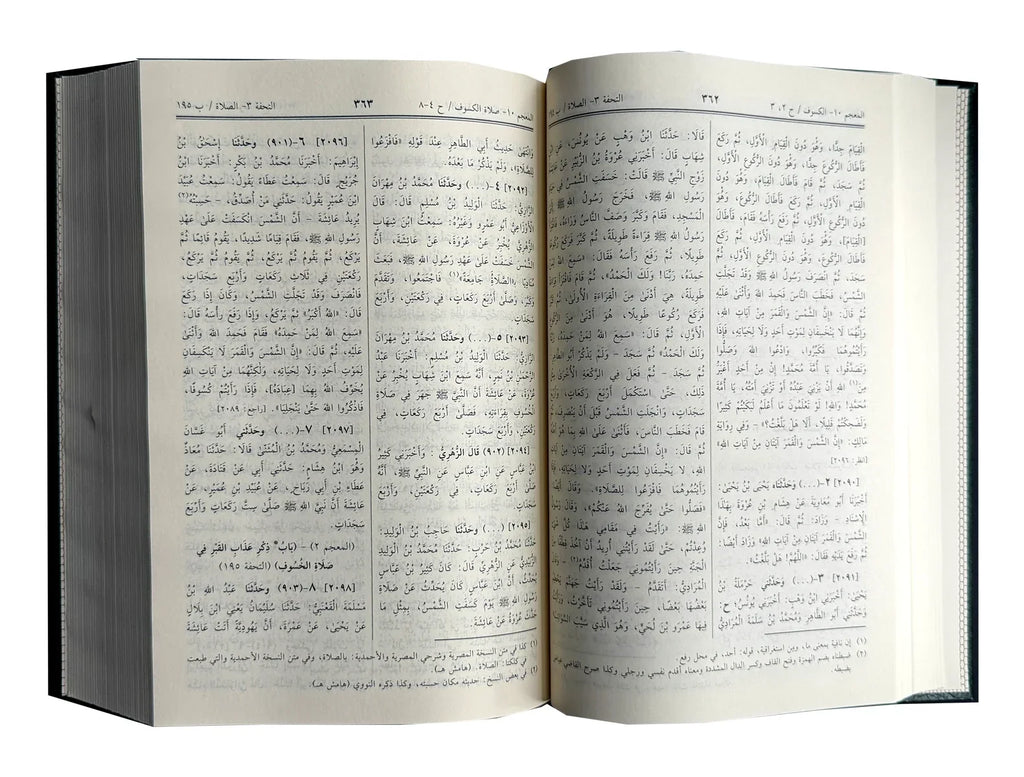 المعجم ١٠- الكسوف/ ح ٢، ٣
٣٦٢
التحفة ٣- الصلاة/ ب
الْقِيَامَ جِدًّا، وَهُوَ دُونَ الْقِيَامِ الْأَوَّلِ، ثُمَّ رَكَعَ
فَأَطَالَ الرُّكُوعَ جِدًّا، وَهُوَ دُونَ الرُّكُوعِ الْأَوَّلِ،
ثُمَّ سَجَدَ، ثُمَّ قَامَ فَأَطَالَ الْقِيَامَ، وَهُوَ دُونَ
الْقِيَامِ الْأَوَّلِ، ثُمَّ رَكَعَ فَأَطَالَ الرُّكُوعَ، وَهُوَ
دُونَ الرُّكُوعِ الْأَوَّلِ، ثُمَّ رَفَعَ رَأْسَهُ فَقَامَ، فَأَطَالَ
[الْقِيَامَ]، وَهُوَ دُونَ الْقِيَامِ الْأَوَّلِ، ثُمَّ رَكَعَ
فَأَطَالَ الرُّكُوعَ، وَهُوَ دُونَ الرُّكُوعِ الْأَوَّلِ، ثُمَّ
سَجَدَ، ثُمَّ انْصَرَفَ رَسُولُ اللهِ ﷺ وَقَدْ تَجَلَّتِ
الشَّمْسُ، فَخَطَبَ النَّاسَ فَحَمِدَ اللهَ وَأَثْنَى عَلَيْهِ
ثُمَّ قَالَ: «إِنَّ الشَّمْسَ وَالْقَمَرَ مِنْ آيَاتِ اللهِ،
وَإِنَّهُمَا لَا يَنْخَسِفَانِ لِمَوْتِ أَحَدٍ وَلَا لِحَيَاتِهِ، فَإِذَا
رَأَيْتُمُوهُمَا فَكَبِّرُوا، وَادْعُوا اللهَ وَصَلُّوا
وَتَصَدَّقُوا، يَا أُمَّةَ مُحَمَّدٍ! إِنْ مِنْ أَحَدٍ أَغْيَرُ
مِنَ(١) اللهِ أَنْ يَزْنِيَ عَبْدُهُ أَوْ تَزْنِيَ أَمَتُهُ، يَا أُمَّةَ
مُحَمَّدٍ! وَاللهِ! لَوْ تَعْلَمُونَ مَا أَعْلَمُ لَبَكَيْتُمْ كَثِيرًا
وَلَضَحِكْتُمْ قَلِيلًا، أَلَا هَلْ بَلَّغْتُ؟» - وَفِي رِوَايَةِ
مَالِكٍ: «إِنَّ الشَّمْسَ وَالْقَمَرَ آيَتَانِ مِنْ آيَاتِ اللهِ».
[انظر: ٢٠٩٦]
[٢٠٩٠] ٢-(...) وحَدَّثَنَاه يَحْيَى بْنُ يَحْيَى:
أَخْبَرَنَا أَبُو مُعَاوِيَةَ عَنْ هِشَامِ بْنِ عُرْوَةَ بِهَذَا
الْإِسْنَادِ - وَزَادَ: ثُمَّ قَالَ: «أَمَّا بَعْدُ، فَإِنَّ
الشَّمْسَ وَالْقَمَرَ آيَتَانِ مِنْ آيَاتِ اللهِ» وَزَادَ أَيْضًا:
ثُمَّ رَفَعَ يَدَيْهِ فَقَالَ: «اللَّهُمَّ! هَلْ بَلَّغْتُ».
[٢٠٩١] ٣-(...) وحَدَّثَنِي حَرْمَلَةُ بْنُ
يَحْيَى: أَخْبَرَنِي ابْنُ وَهْبٍ: أَخْبَرَنِي يُونُسُ؛ ح:
وَحَدَّثَنِي أَبُو الطَّاهِرِ وَمُحَمَّدُ بْنُ سَلَمَةَ الْمُرَادِيُّ
قَالَا: حَدَّثَنَا ابْنُ وَهْبٍ عَنْ يُونُسَ، عَنِ ابْنِ
شِهَابٍ قَالَ: أَخْبَرَنِي عُرْوَةُ بْنُ الزُّبَيْرِ عَنْ
زَوْجِ النَّبِيِّ ﷺ قَالَتْ: خَسَفَتِ الشَّمْسُ فِي
رَسُولِ اللهِ ﷺ، فَخَرَجَ رَسُولُ اللهِ ﷺ
الْمَسْجِدِ، فَقَامَ وَكَبَّرَ وَصَفَّ النَّاسُ وَرَاءَهُ،
رَسُولُ اللهِ ﷺ قِرَاءَةً طَوِيلَةً، ثُمَّ كَبَّرَ فَرَكَعَ رُكُوعًا
طَوِيلًا، ثُمَّ رَفَعَ رَأْسَهُ فَقَالَ: «سَمِعَ اللهُ
حَمِدَهُ، رَبَّنَا! وَلَكَ الْحَمْدُ» ثُمَّ قَامَ فَاقْتَرَأَ
طَوِيلَةً، هِيَ أَدْنَى مِنَ الْقِرَاءَةِ الْأُولَى، ثُمَّ
فَرَكَعَ رُكُوعًا طَوِيلًا، هُوَ أَدْنَى مِنَ
الْأَوَّلِ، ثُمَّ قَالَ: «سَمِعَ اللهُ لِمَنْ حَمِدَهُ،
وَلَكَ الْحَمْدُ» ثُمَّ سَجَدَ - وَلَمْ يَذْكُرْ أَبُو
ثُمَّ سَجَدَ - ثُمَّ فَعَلَ فِي الرَّكْعَةِ الْأُخْرَى
ذَلِكَ، حَتَّى اسْتَكْمَلَ أَرْبَعَ رَكَعَاتٍ،
سَجَدَاتٍ، وَانْجَلَتِ الشَّمْسُ قَبْلَ أَنْ يَنْصَرِفَ،
قَامَ فَخَطَبَ النَّاسَ، فَأَثْنَى عَلَى اللهِ بِمَا
ثُمَّ قَالَ: «إِنَّ الشَّمْسَ وَالْقَمَرَ آيَتَانِ مِنْ
اللهِ، لَا يَخْسِفَانِ لِمَوْتِ أَحَدٍ وَلَا لِحَيَاتِهِ،
رَأَيْتُمُوهُمَا فَافْزَعُوا لِلصَّلَاةِ». وَقَالَ
«فَصَلُّوا حَتَّى يُفَرِّجَ اللهُ عَنْكُمْ». وَقَالَ
اللهِ ﷺ: «رَأَيْتُ فِي مَقَامِي هَذَا كُلَّ شَيْءٍ
وُعِدْتُمْ، حَتَّى لَقَدْ رَأَيْتُنِي أُرِيدُ أَنْ آخُذَ قِطْفًا
الْجَنَّةِ حِينَ رَأَيْتُمُونِي جَعَلْتُ أُقَدِّمُ(٢)
الْمُرَادِيُّ: أَتَقَدَّمُ - وَلَقَدْ رَأَيْتُ جَهَنَّمَ
بَعْضُهَا بَعْضًا، حِينَ رَأَيْتُمُونِي تَأَخَّرْتُ،
فِيهَا عَمْرَو بْنَ لُحَيٍّ، وَهُوَ الَّذِي سَيَّبَ
(١) إن نافية بمعنى ما، ومن استغراقية، قوله: أحد، في محل رفع.
(٢) ضبطناه بضم الهمزة وفتح القاف وكسر الدال المشددة ومعناه أقدم نفسي ورجلي وكذا صرح القاضي عياض
بضبطه.
المعجم ١٠- صلاة الكسوف/ ح ٤-٨
٣٦٣
التحفة ٣- الصلاة/ ب ١٩٥
وَانْتَهَى حَدِيثُ أَبِي الطَّاهِرِ عِنْدَ قَوْلِهِ «فَافْزَعُوا
لِلصَّلَاةِ»، وَلَمْ يَذْكُرْ مَا بَعْدَهُ.
[٢٠٩٢] ٤-(...) وحَدَّثَنَا مُحَمَّدُ بْنُ مِهْرَانَ
الرَّازِيُّ: حَدَّثَنَا الْوَلِيدُ بْنُ مُسْلِمٍ قَالَ: قَالَ
الْأَوْزَاعِيُّ أَبُو عَمْرٍو وَغَيْرُهُ: سَمِعْتُ ابْنَ شِهَابٍ
الزُّهْرِيَّ يُخْبِرُ عَنْ عُرْوَةَ، عَنْ عَائِشَةَ، أَنَّ
الشَّمْسَ خَسَفَتْ عَلَى عَهْدِ رَسُولِ اللهِ ﷺ، فَبَعَثَ
مُنَادِيًا «الصَّلَاةَ جَامِعَةً»(١) فَاجْتَمَعُوا، وَتَقَدَّمَ
فَكَبَّرَ، وَصَلَّى أَرْبَعَ رَكَعَاتٍ، فِي رَكْعَتَيْنِ، وَأَرْبَعَ
سَجَدَاتٍ.
[٢٠٩٣] ٥-(...) وحَدَّثَنَا مُحَمَّدُ بْنُ مِهْرَانَ
الرَّازِيُّ: حَدَّثَنَا الْوَلِيدُ بْنُ مُسْلِمٍ: أَخْبَرَنَا عَبْدُ
الرَّحْمَنِ بْنُ نَمِرٍ، أَنَّهُ سَمِعَ ابْنَ شِهَابٍ يُخْبِرُ عَنْ
عُرْوَةَ، عَنْ عَائِشَةَ أَنَّ النَّبِيَّ ﷺ جَهَرَ فِي صَلَاةِ
الْخُسُوفِ بِقِرَاءَتِهِ، فَصَلَّى أَرْبَعَ رَكَعَاتٍ، فِي
رَكْعَتَيْنِ، وَأَرْبَعَ سَجَدَاتٍ.
[٢٠٩٤] (٩٠٢) قَالَ الزُّهْرِيُّ: وَأَخْبَرَنِي كَثِيرُ
بْنُ عَبَّاسٍ عَنِ ابْنِ عَبَّاسٍ عَنِ النَّبِيِّ ﷺ، أَنَّهُ
صَلَّى أَرْبَعَ رَكَعَاتٍ، فِي رَكْعَتَيْنِ، وَأَرْبَعَ
سَجَدَاتٍ.
[٢٠٩٥] (...) وحَدَّثَنَا حَاجِبُ بْنُ الْوَلِيدِ:
حَدَّثَنَا مُحَمَّدُ بْنُ حَرْبٍ: حَدَّثَنَا مُحَمَّدُ بْنُ الْوَلِيدِ
الزُّبَيْدِيُّ عَنِ الزُّهْرِيِّ قَالَ: كَانَ كَثِيرُ بْنُ عَبَّاسٍ
يُحَدِّثُ، أَنَّ ابْنَ عَبَّاسٍ كَانَ يُحَدِّثُ عَنْ صَلَاةِ
رَسُولِ اللهِ ﷺ يَوْمَ كَسَفَتِ الشَّمْسُ، بِمِثْلِ مَا
حَدَّثَ عُرْوَةُ عَنْ عَائِشَةَ.
[٢٠٩٦] ٦-(٩٠١) وحَدَّثَنَا إِسْحَقُ بْنُ
إِبْرَاهِيمَ: أَخْبَرَنَا مُحَمَّدُ بْنُ بَكْرٍ: أَخْبَرَنَا ابْنُ
جُرَيْجٍ قَالَ: سَمِعْتُ عَطَاءً يَقُولُ: سَمِعْتُ عُبَيْدَ
ابْنَ عُمَيْرٍ يَقُولُ: حَدَّثَنِي مَنْ أُصَدِّقُ، - حَسِبْتُهُ(٢)
يُرِيدُ عَائِشَةَ - أَنَّ الشَّمْسَ انْكَسَفَتْ عَلَى عَهْدِ
رَسُولِ اللهِ ﷺ، فَقَامَ قِيَامًا شَدِيدًا، يَقُومُ قَائِمًا ثُمَّ
يَرْكَعُ، ثُمَّ يَقُومُ ثُمَّ يَرْكَعُ، ثُمَّ يَقُومُ ثُمَّ يَرْكَعُ،
رَكْعَتَيْنِ فِي ثَلَاثِ رَكَعَاتٍ وَأَرْبَعِ سَجَدَاتٍ،
فَانْصَرَفَ وَقَدْ تَجَلَّتِ الشَّمْسُ، وَكَانَ إِذَا رَكَعَ
قَالَ: «اللهُ أَكْبَرُ» ثُمَّ يَرْكَعُ، وَإِذَا رَفَعَ رَأْسَهُ قَالَ:
«سَمِعَ اللهُ لِمَنْ حَمِدَهُ» فَقَامَ فَحَمِدَ اللهَ وَأَثْنَى
عَلَيْهِ، ثُمَّ قَالَ: «إِنَّ الشَّمْسَ وَالْقَمَرَ لَا يَنْكَسِفَانِ
لِمَوْتِ أَحَدٍ وَلَا لِحَيَاتِهِ، وَلَكِنَّهُمَا مِنْ آيَاتِ اللهِ
يُخَوِّفُ اللهُ بِهِمَا [عِبَادَهُ]، فَإِذَا رَأَيْتُمْ كُسُوفًا،
فَاذْكُرُوا اللهَ حَتَّى يَنْجَلِيَا». [راجع: ٢٠٨٩]
[٢٠٩٧] ٧-(...) وحَدَّثَنِي أَبُو غَسَّانَ
الْمِسْمَعِيُّ وَمُحَمَّدُ بْنُ الْمُثَنَّى قَالَا: حَدَّثَنَا مُعَاذٌ
وَهُوَ ابْنُ هِشَامٍ: حَدَّثَنِي أَبِي عَنْ قَتَادَةَ، عَنْ
عَطَاءِ بْنِ أَبِي رَبَاحٍ، عَنْ عُبَيْدِ بْنِ عُمَيْرٍ، عَنْ
عَائِشَةَ أَنَّ نَبِيَّ اللهِ ﷺ صَلَّى سِتَّ رَكَعَاتٍ وَأَرْبَعَ
سَجَدَاتٍ.
(المعجم ٢) - (بَابُ* ذِكْرِ عَذَابِ الْقَبْرِ فِي
صَلَاةِ الْخُسُوفِ) (التحفة ١٩٥)
[٢٠٩٨] ٨-(٩٠٣) وحَدَّثَنَا عَبْدُ اللهِ بْنُ
مَسْلَمَةَ الْقَعْنَبِيُّ: حَدَّثَنَا سُلَيْمَانُ يَعْنِي ابْنَ بِلَالٍ
عَنْ يَحْيَى، عَنْ عَمْرَةَ، أَنَّ يَهُودِيَّةً أَتَتْ عَائِشَةَ
(١) كذا في متن النسخة المصرية وشرحي المصرية والأحمدية: بالصلاة، وفي متن النسخة الأحمدية والتي طبعت
في كلكتا: الصلاة. (هامش هـ)
(٢) في بعض النسخ: حديثه مكان حسبته، وكذا ذكره النووي (هامش هـ).